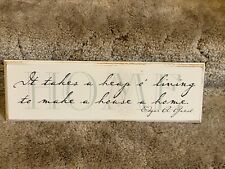 It takes a heap o' living
to make a house a home.
Edgar A. Guest